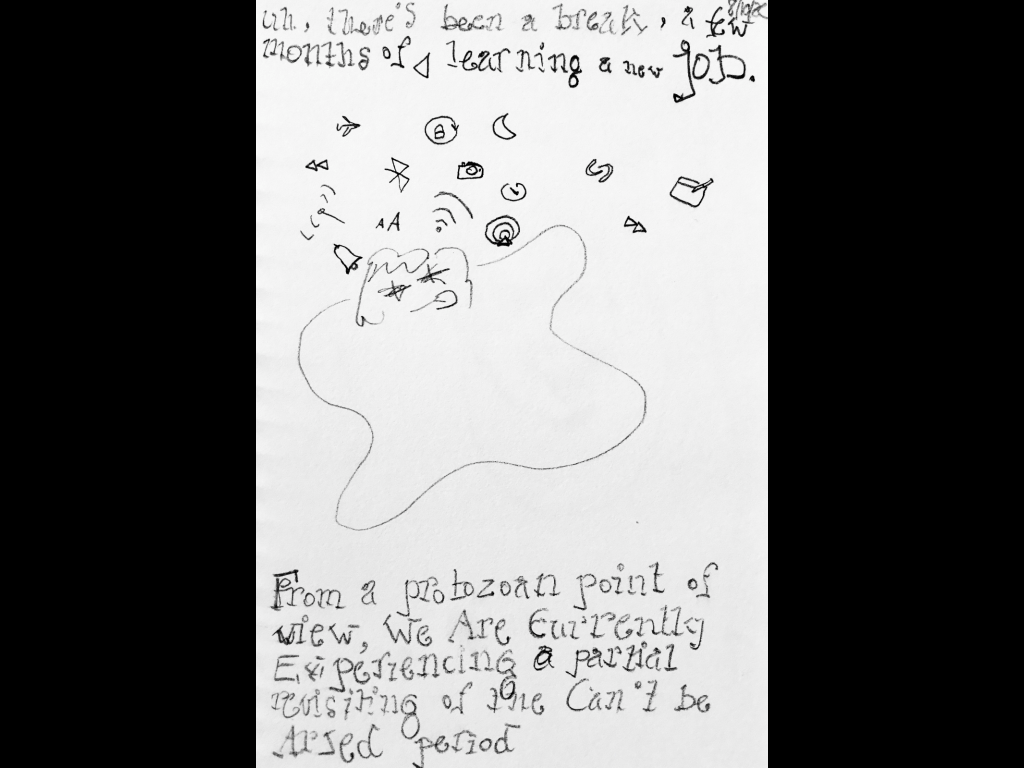 uh, there's been a break, a few
months of learning a new job.
AA
From a protozoan point of
view, We Are Currently
Experiencing a partial
revisiting of the Can't be
Arsed period